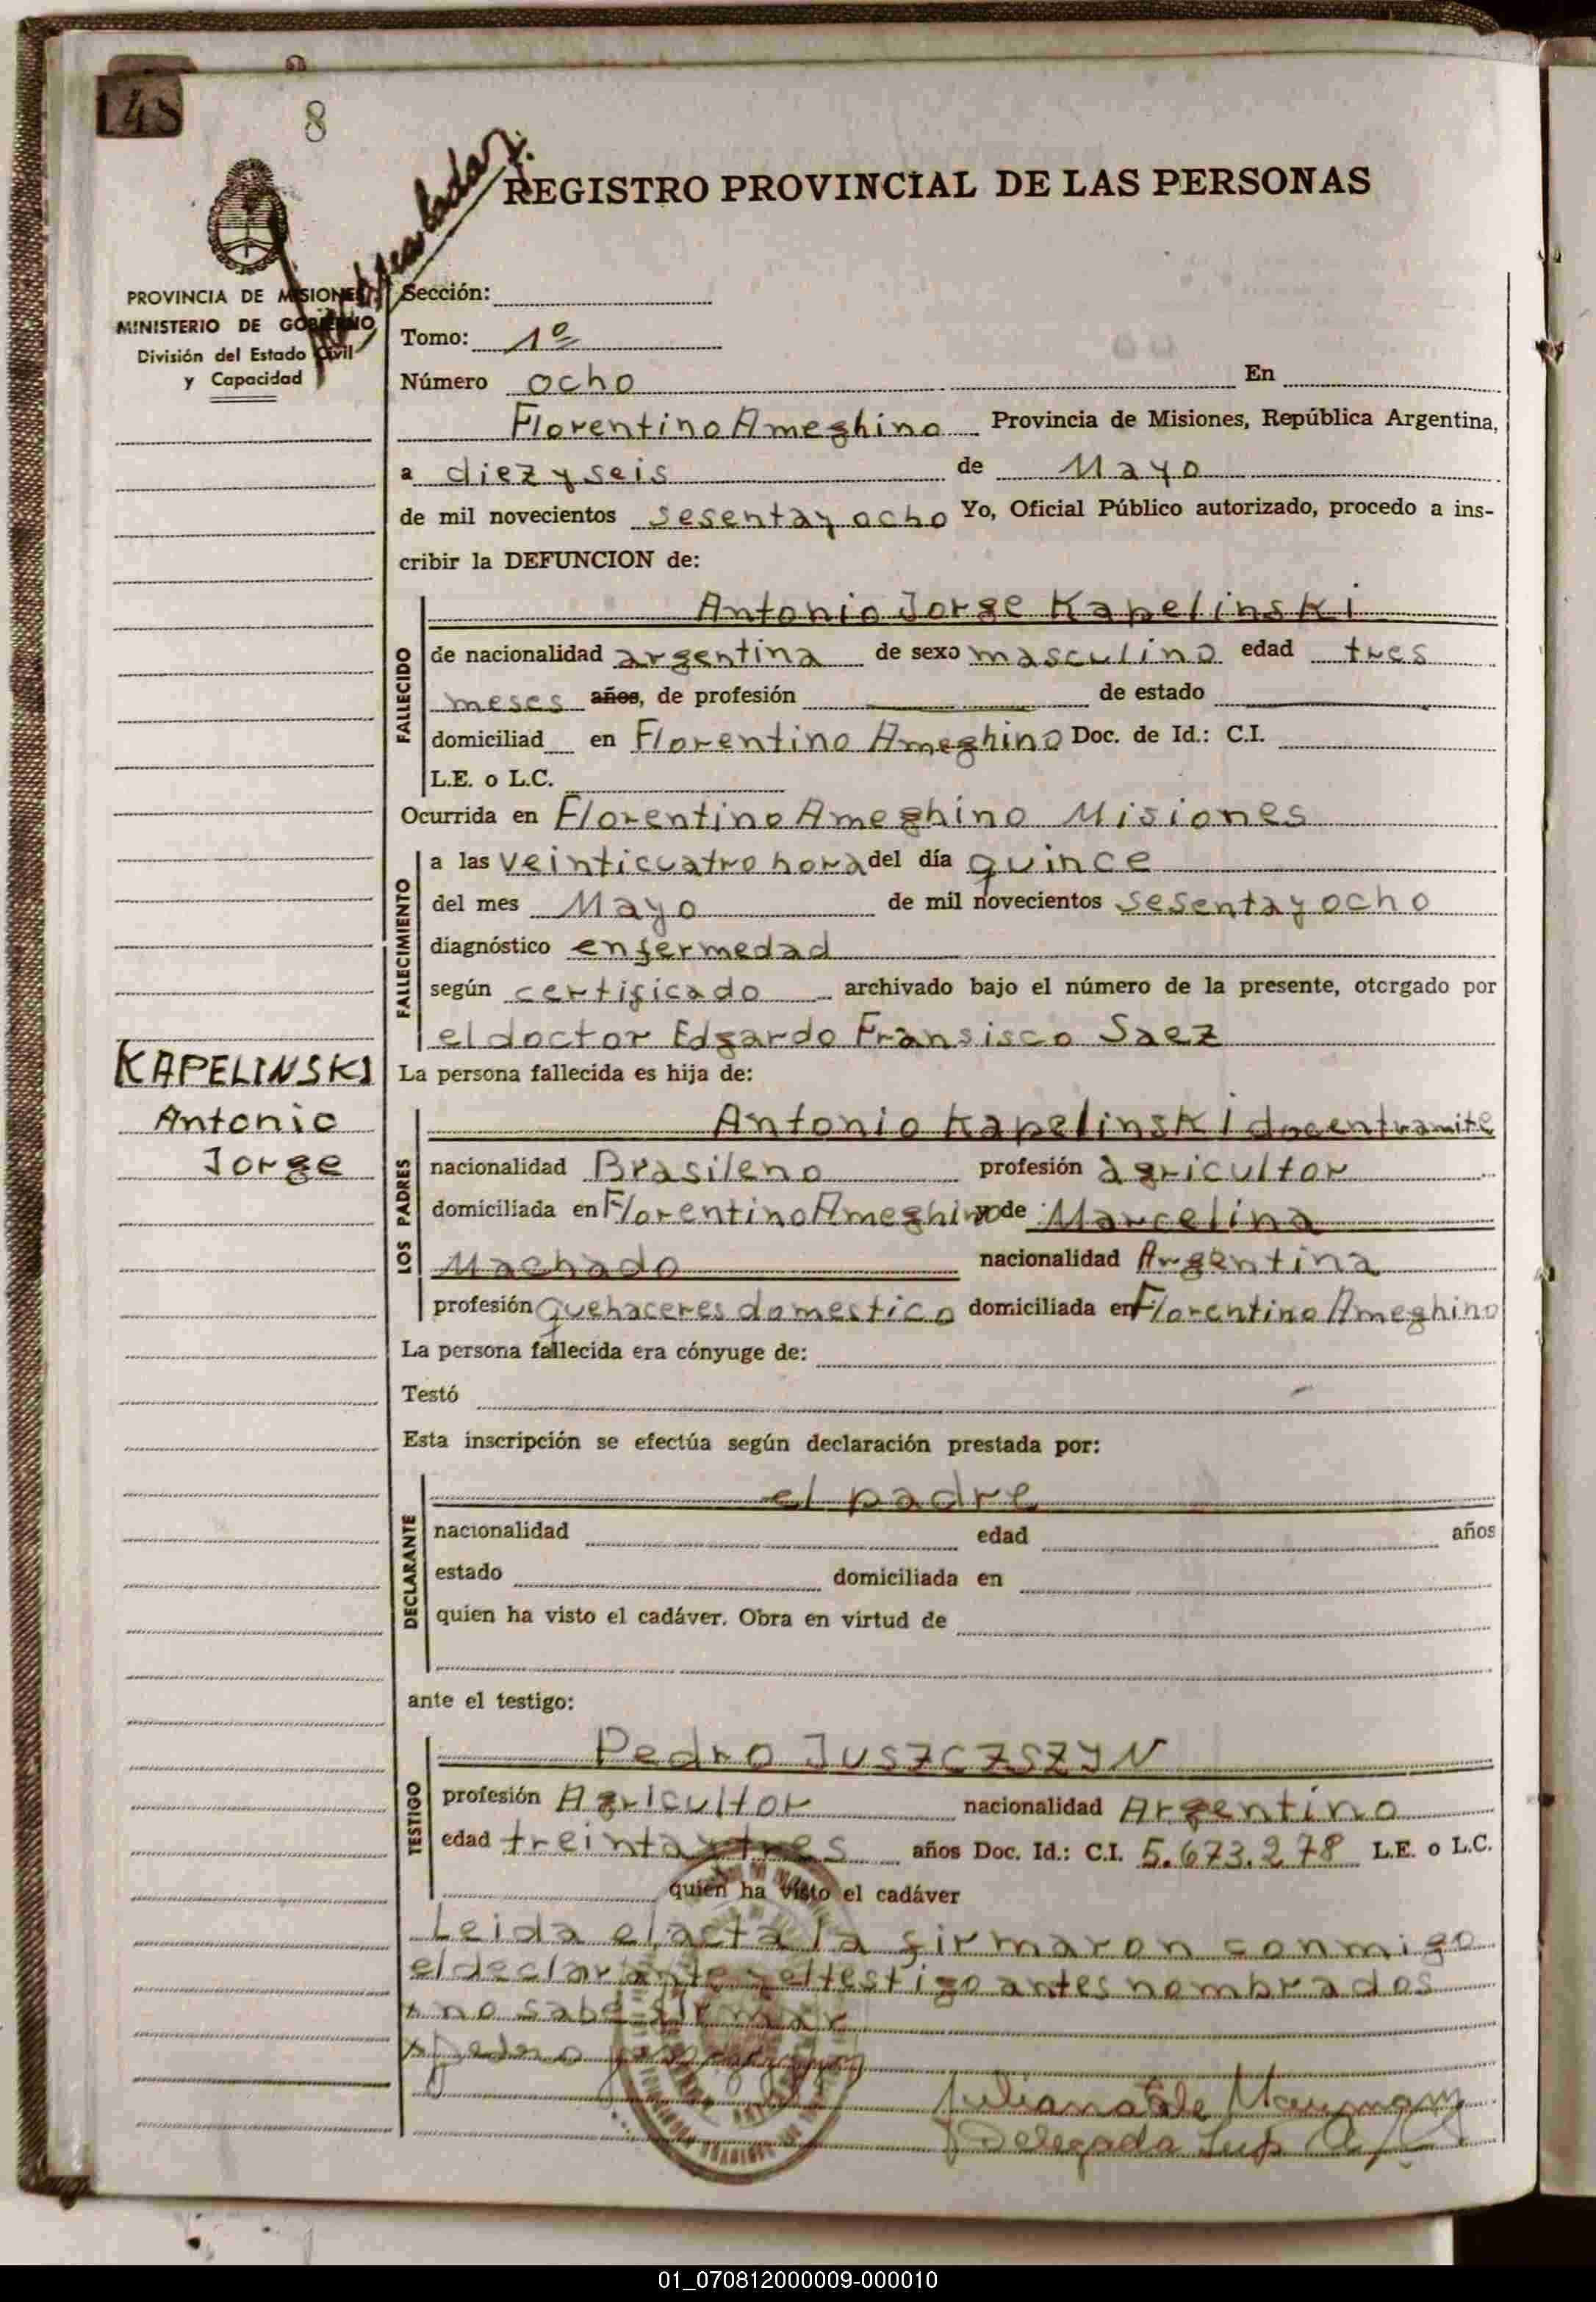 148
8
REGISTRO PROVINCIAL DE LAS PERSONAS
PROVINCIA DE MISIONES
MINISTERIO DE GOBIERNO
División del Estado Civil
y Capacidad
Sección:
Tomo: 1º
Número ocho En
Florentino Ameghino Provincia de Misiones, República Argentina,
a diez y seis de Mayo
de mil novecientos sesenta y ocho Yo, Oficial Público autorizado, procedo a ins-
cribir la DEFUNCION de:
FALLECIDO
Antonio Jorge Kapelinski
de nacionalidad argentina de sexo masculino edad tres
meses años, de profesión de estado
domiciliad en Florentino Ameghino Doc. de Id.: C.I.
L.E. o L.C.
Ocurrida en Florentino Ameghino Misiones
FALLECIMIENTO
a las veinticuatro hora del día quince
del mes Mayo de mil novecientos sesenta y ocho
diagnóstico enfermedad
según certificado archivado bajo el número de la presente, otorgado por
el doctor Edgardo Fransisco Saez
KAPELINSKI
Antonio
Jorge
La persona fallecida es hija de:
LOS PADRES
Antonio Kapelinski doc en tramite
nacionalidad Brasileno profesión agricultor
domiciliada en Florentino Ameghino y de Marcelina
Machado nacionalidad Argentina
profesión Quehaceres domestico domiciliada en Florentino Ameghino
La persona fallecida era cónyuge de:
Testó
Esta inscripción se efectúa según declaración prestada por:
DECLARANTE
el padre
nacionalidad edad años
estado domiciliada en
quien ha visto el cadáver. Obra en virtud de
ante el testigo:
TESTIGO
Pedro JUSZCZSZYN
profesión Agricultor nacionalidad Argentino
edad treinta y tres años Doc. Id.: C.I. 5.673.278 L.E. o L.C.
quien ha visto el cadáver
Leida el acta la firmaron conmigo
el declarante y el testigo antes nombrados
x no sabe firmar
x Pedro
Delegada Sup
01_070812000009-000010